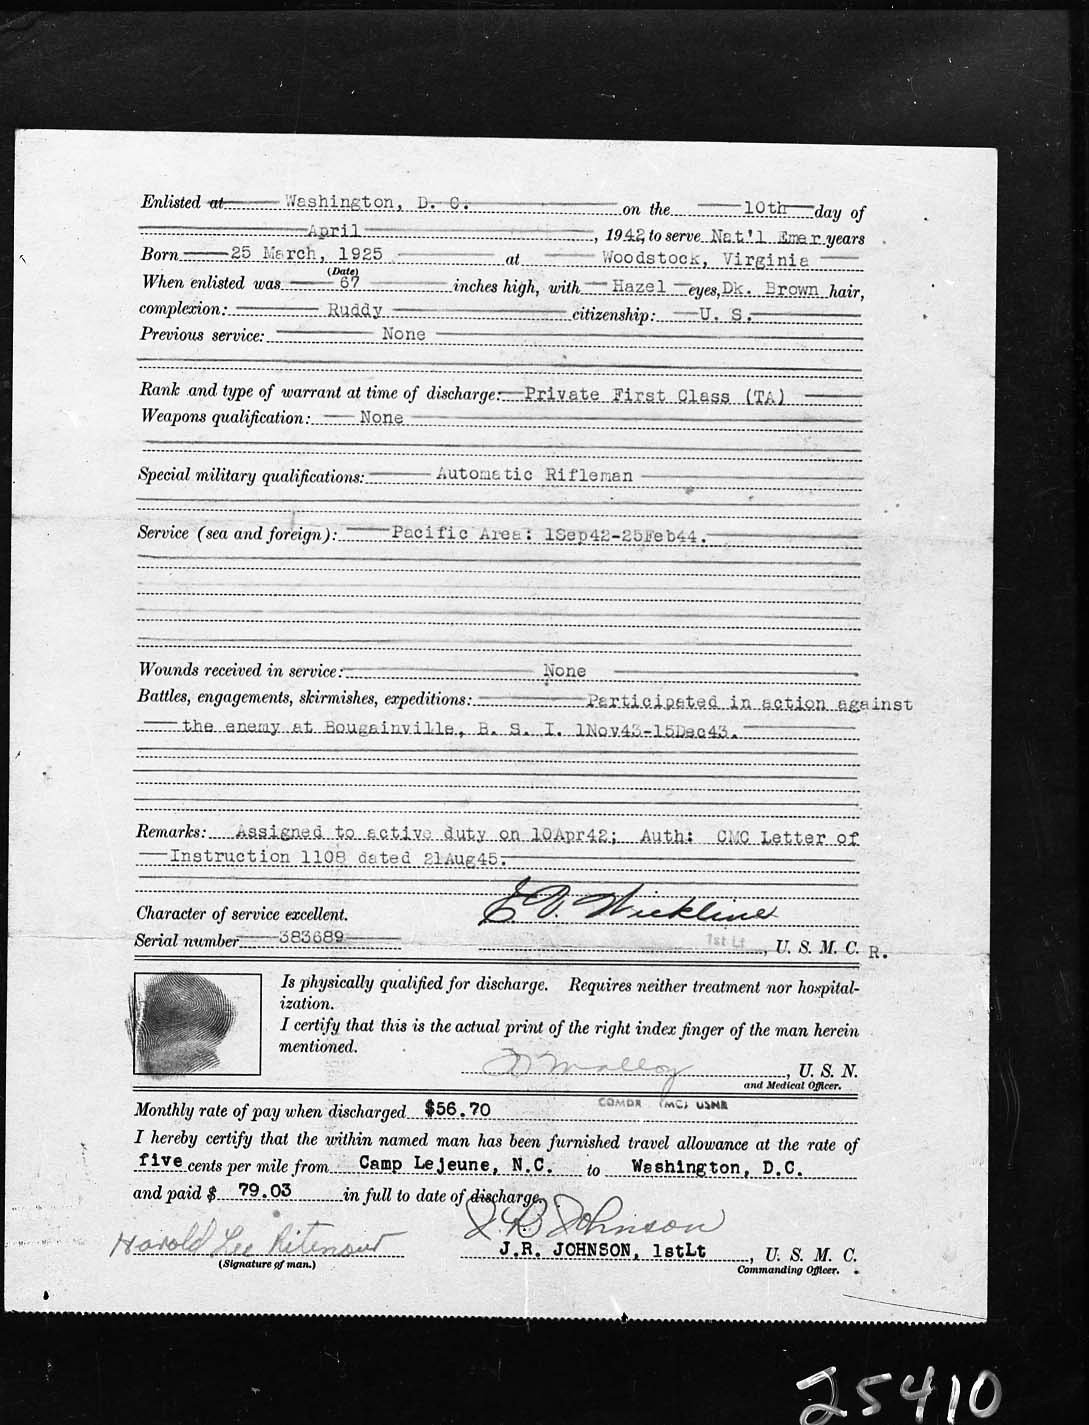 Enlisted at Washington, D. C. on the 10th day of
April, 1942, to serve Nat'l Emer years
Born 25 March, 1925 at Woodstock, Virginia
(Date)
When enlisted was 67 inches high, with Hazel eyes, Dk. Brown hair,
complexion: Ruddy citizenship: U. S.
Previous service: None
Rank and type of warrant at time of discharge: Private First Class (TA)
Weapons qualification: None
Special military qualifications: Automatic Rifleman
Service (sea and foreign): Pacific Area: 1Sep42-25Feb44.
Wounds received in service: None
Battles, engagements, skirmishes, expeditions: Participated in action against
the enemy at Bougainville, B. S. I. 1Nov43-15Dec43.
Remarks: Assigned to active duty on 10Apr42; Auth: CMC Letter of
Instruction 1108 dated 21Aug45.
Character of service excellent. Wickline
Serial number 383689 1st Lt, U. S. M. C. R.
Is physically qualified for discharge. Requires neither treatment nor hospital-
ization.
I certify that this is the actual print of the right index finger of the man herein
mentioned.
Malloy, U. S. N.
and Medical Officer.
COMDR (MC) USNR
Monthly rate of pay when discharged $56.70
I hereby certify that the within named man has been furnished travel allowance at the rate of
five cents per mile from Camp Lejeune, N.C. to Washington, D.C.
and paid $ 79.03 in full to date of discharge.
Harold Lee Ritenour Johnson
J.R. JOHNSON, 1stLt, U. S. M. C.
(Signature of man.) Commanding Officer.
25410